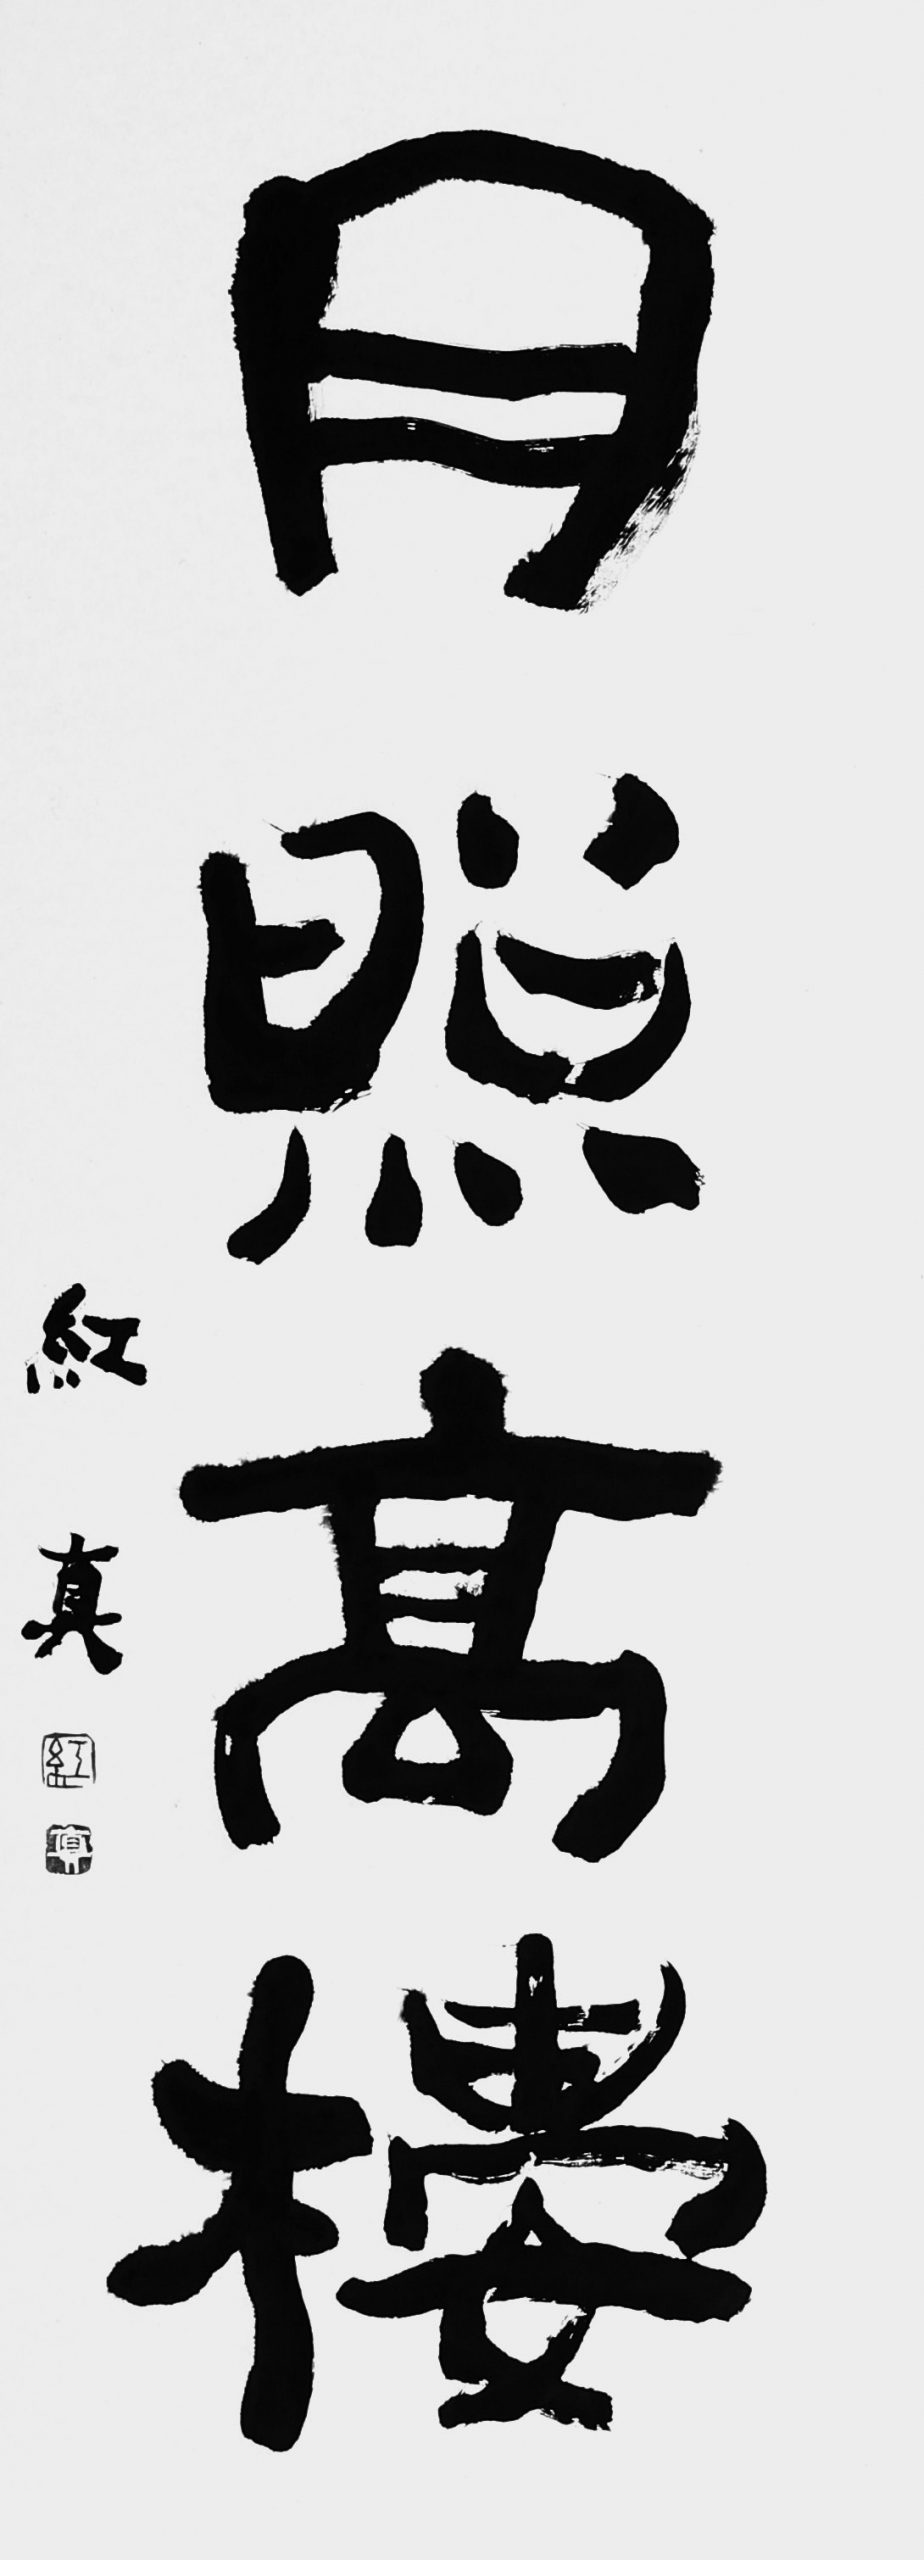 月照高樓
紅真
紅
真